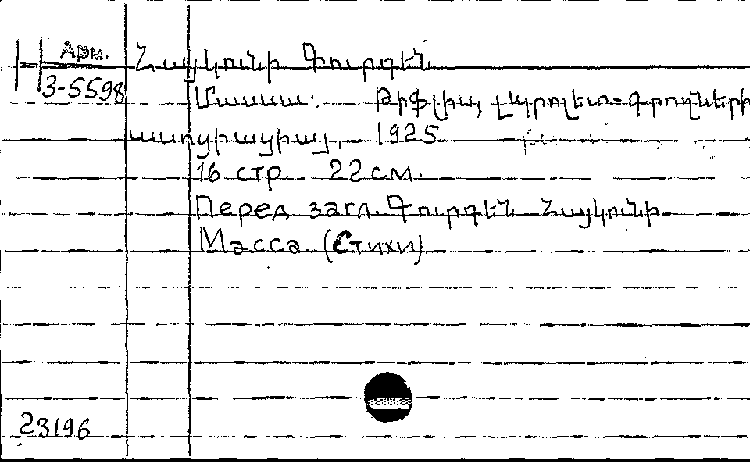 Арм. Հայկունի Գուրգեն
3-5598 Մասսա. Թիֆլիս, պրոլետ-գրողների
ասոցիացիայ, 1925
16 стр 22 см.
Перед загл. Գուրգեն Հայկունի
Масса. (Стихи)
23196